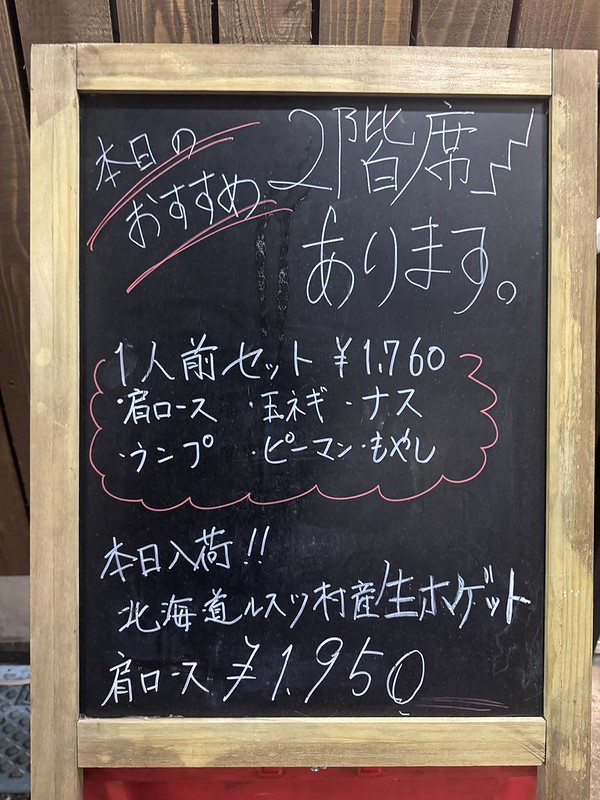 本日の
おすすめ
2階席
あります。
1人前セット ¥1,760
・肩ロース ・玉ネギ ・ナス
・ランプ ・ピーマン ・もやし
本日入荷!!
北海道ルスツ村産生ホゲット
肩ロース ¥1,950